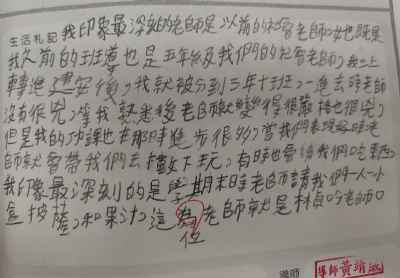 生活札記 我印象最深刻的老師是以前的社會老師她也既是
我久前的班導也是五年級我們的社會老師我三上
轉進建安後我就被分到三年十班一進去時老師
沒有很兇等我熟悉後老師就變得很嚴格也很兇
但是我的功課也在那時進步很多當我們表現好時老
師就會帶我們去樓下玩有時也會給我們吃東西
我印象最深刻的是學期末時老師請我們一人一小
盒披薩和果汁這為老師就是林貞吟老師。
位
導師
導師黃